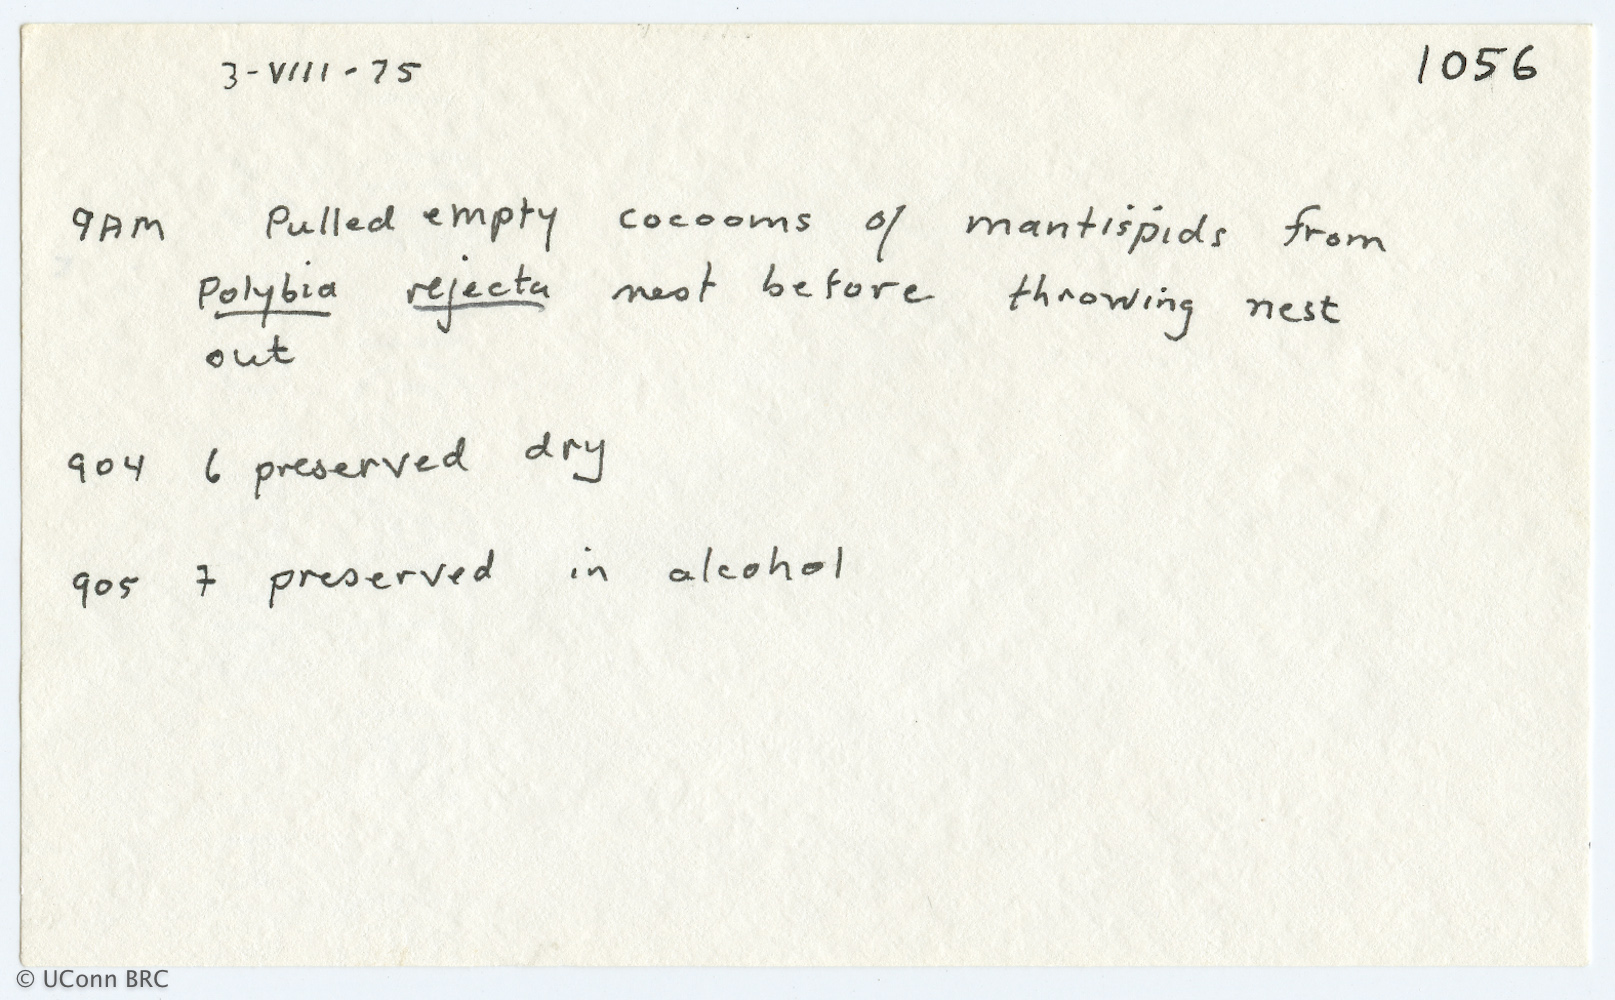 3-VIII-75
1056
9AM Pulled empty cocooms of mantispids from
Polybia rejecta nest before throwing nest
out
904 6 preserved dry
905 7 preserved in alcohol
© UConn BRC